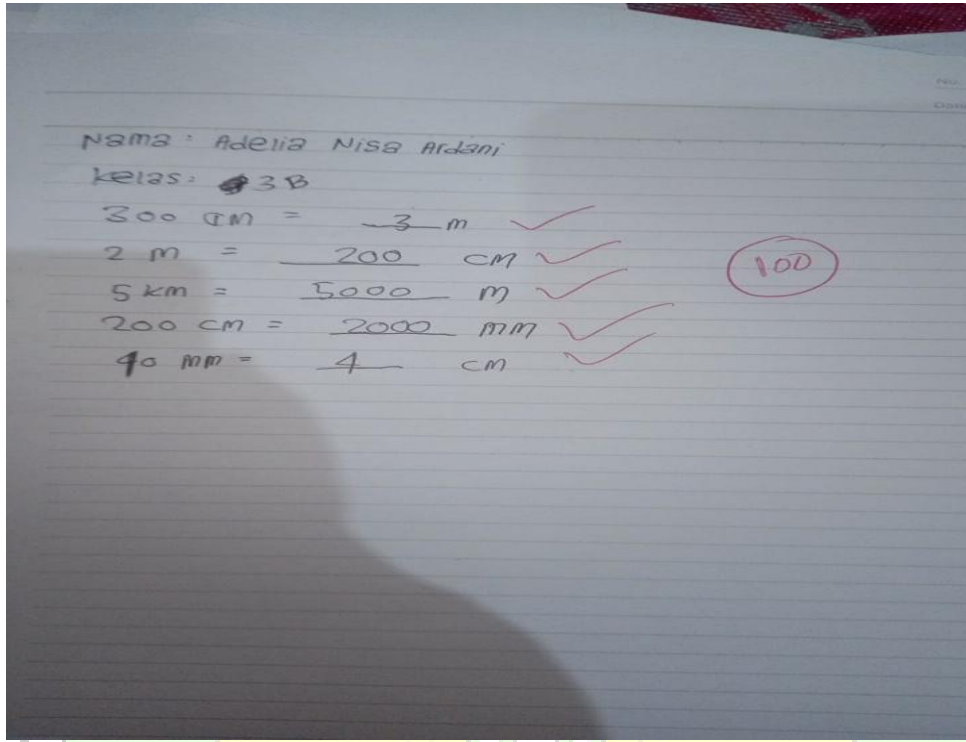 No
Date
Nama : Adelia Nisa Ardani
Kelas : 3B
300 cm = 3 m
2 m = 200 cm
5 km = 5000 m
200 cm = 2000 mm
40 mm = 4 cm
100